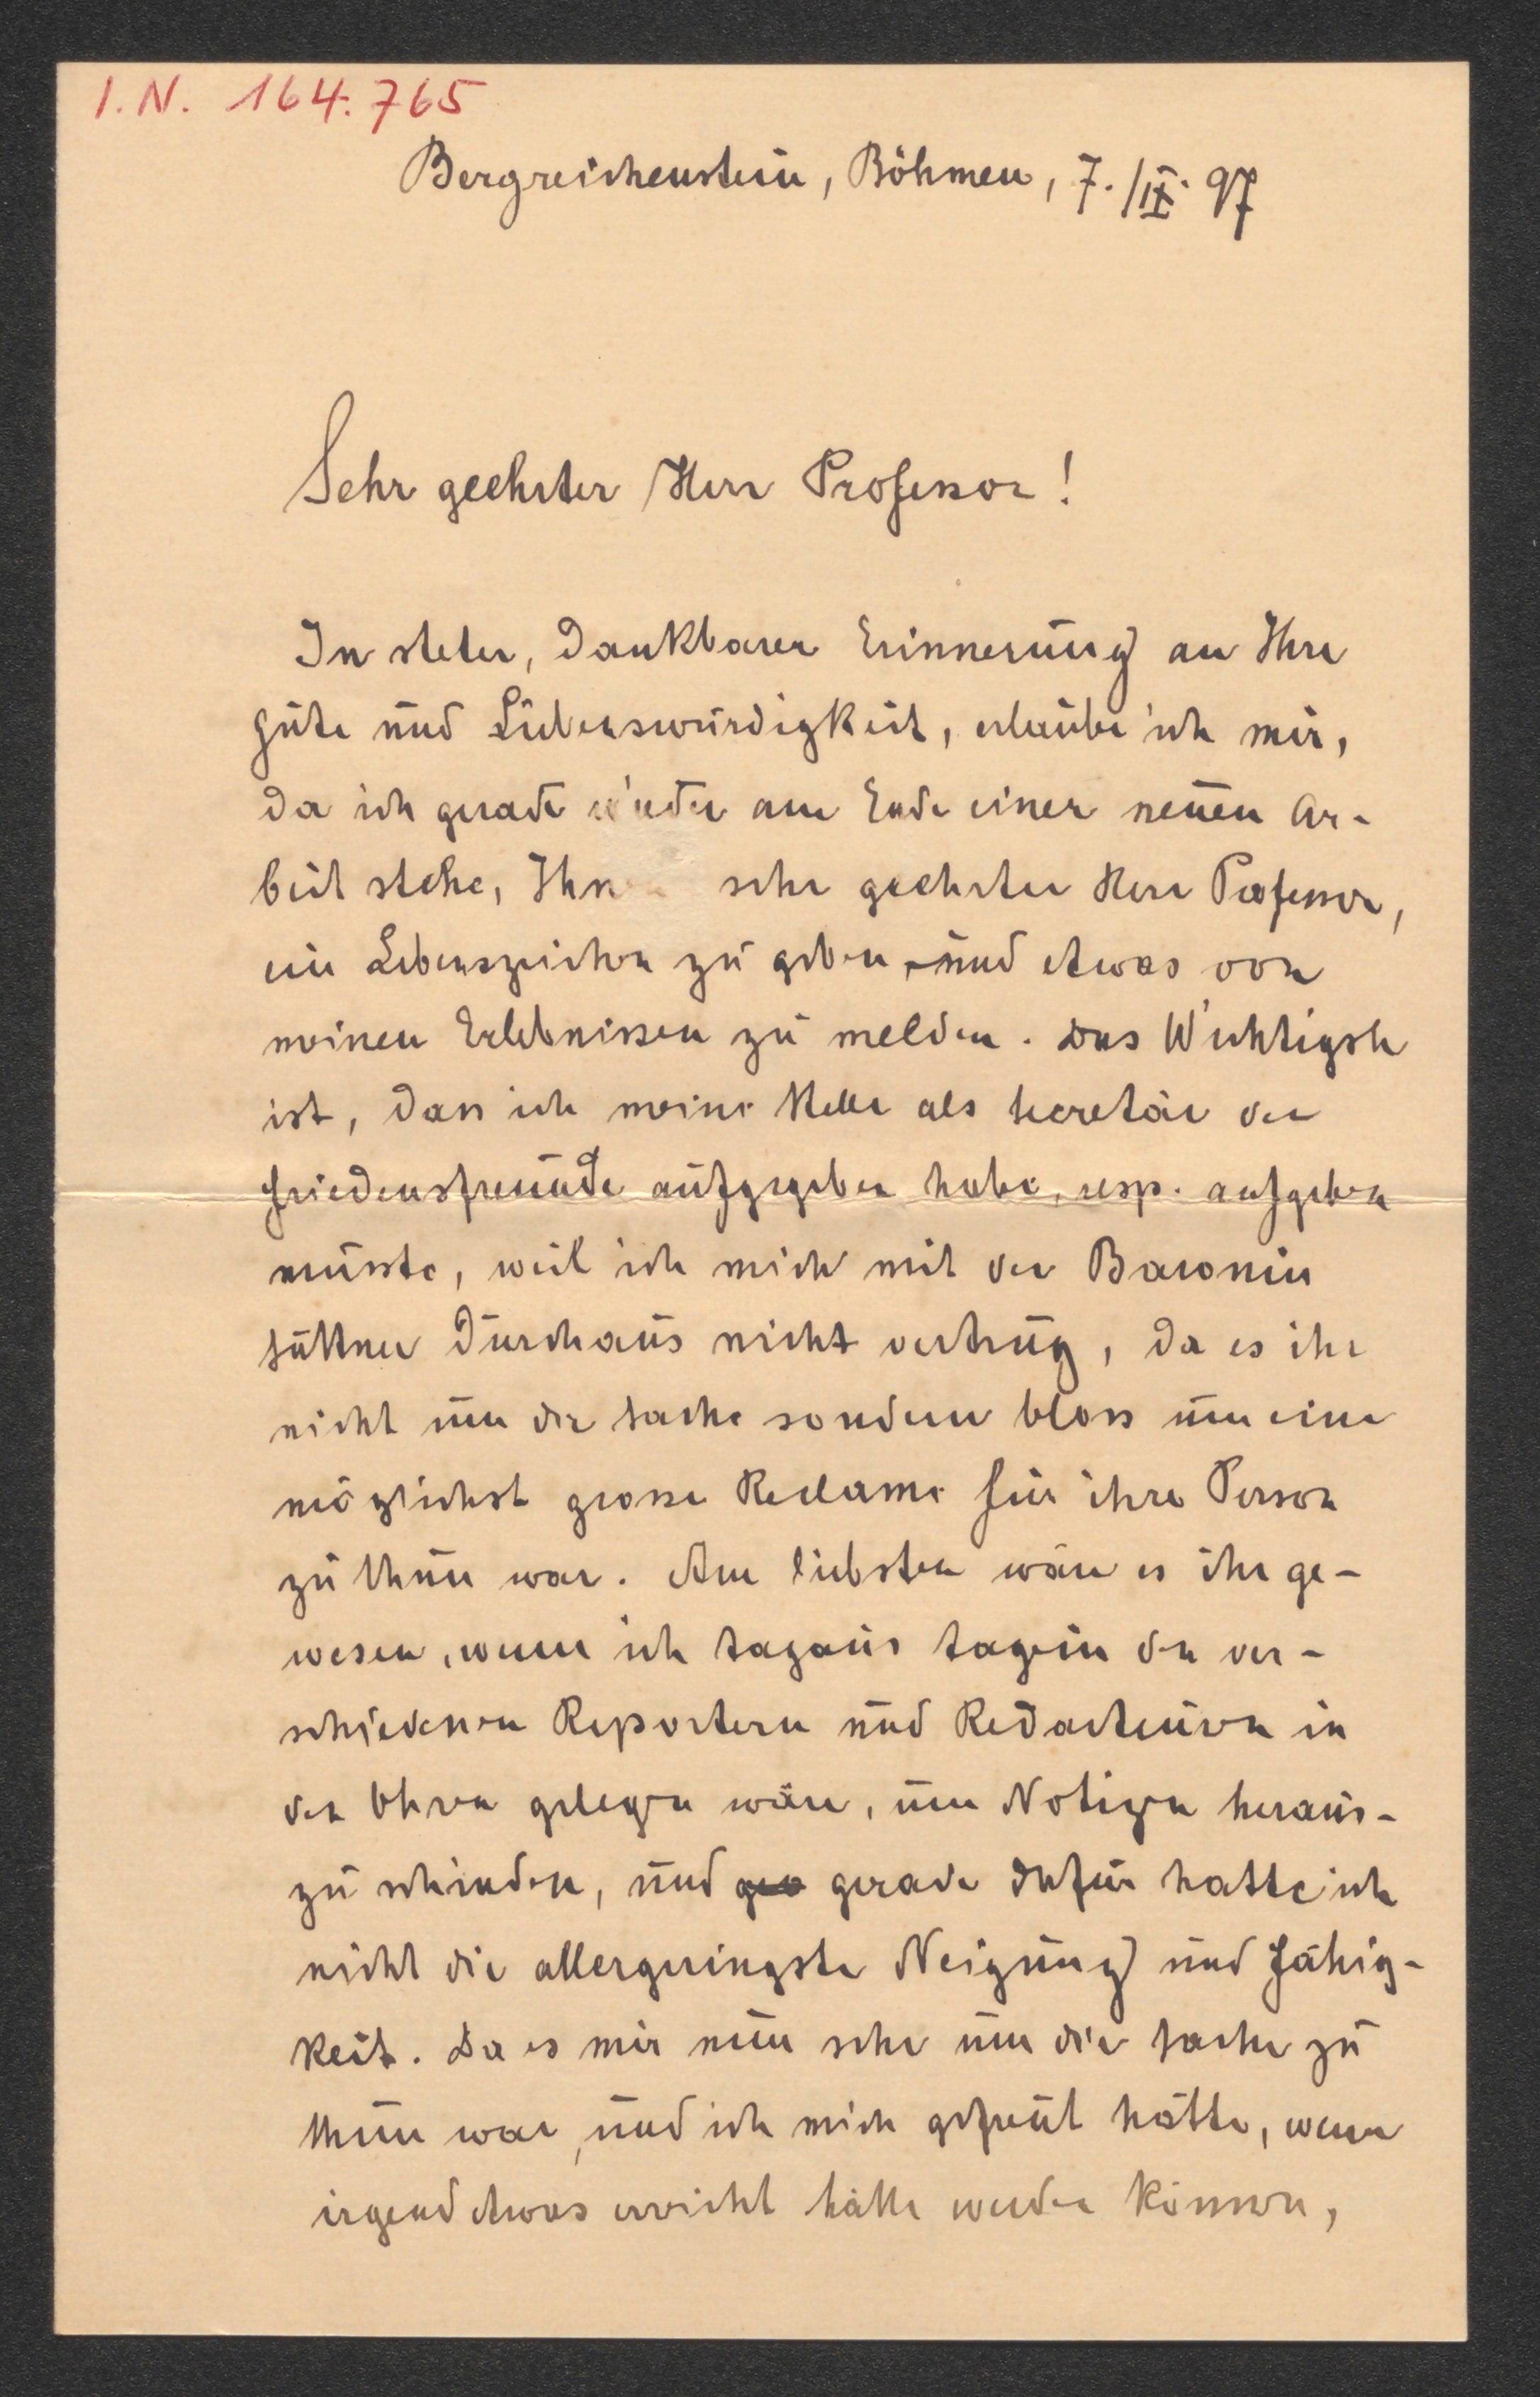 I.N. 164.765
Bergreichenstein, Böhmen, 7./IX. 97
Sehr geehrter Herr Professor!
In steter, dankbarer Erinnerung an Ihre
Güte und Liebenswürdigkeit, erlaube ich mir,
da ich gerade wieder am Ende einer neuen Ar-
beit stehe, Ihnen sehr geehrter Herr Professor,
ein Lebenszeichen zu geben und etwas von
meinen Erlebnissen zu melden. Das Wichtigste
ist, dass ich meine Stelle als Secretär der
Friedensfreunde aufgegeben habe, resp. aufgeben
musste, weil ich mich mit der Baronin
Suttner durchaus nicht vertrug, da es ihr
nicht um die Sache sondern bloss um eine
möglichst grosse Reclame für ihre Person
zu thun war. Am liebsten wäre es ihr ge-
wesen, wenn ich tagaus tagein den ver-
schiedenen Reportern und Redacteuren in
den Ohren gelegen wäre, um Notizen heraus-
zu schinden, und gerade dafür hatte ich
nicht die allergeringste Neigung und Fähig-
keit. Da es mir nun sehr um die Sache zu
thun war, und ich mich gefreut hätte, wenn
irgend etwas erreicht hätte werden können,